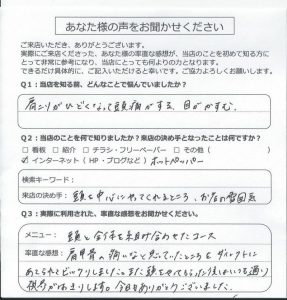 あなた様の声をお聞かせください
ご来店いただき、ありがとうございます。
実際にご来店くださった、あなた様の率直な感想が、当店のことを初めて知る方に
とって非常に参考になり、当店にとっても何よりの力となります。
できるだけ具体的に、ご記入いただけると幸いです。ご協力よろしくお願いします。
Q1：当店を知る前、どんなことで悩んでいましたか？
肩こりがひどくなって頭痛がする、目がかすむ。
Q2：当店のことを何で知りましたか？来店の決め手となったことは何ですか？
□ 看板 □ 紹介 □ チラシ・フリーペーパー □ その他（ ）
☑ インターネット（HP・ブログなど）ホットペッパー
検索キーワード：
来店の決め手： 頭を中心にやってくれるところ、お店の雰囲気
Q3：実際に利用された、率直な感想をお聞かせください。
メニュー： 頭と全体を組み合わせたコース
率直な感想： 肩甲骨の痛いなと思っていたところをダイレクトに
あてられビックリしました。また頭をやってもらった後はいつも通り
視界が します。今日もありがとうございました。